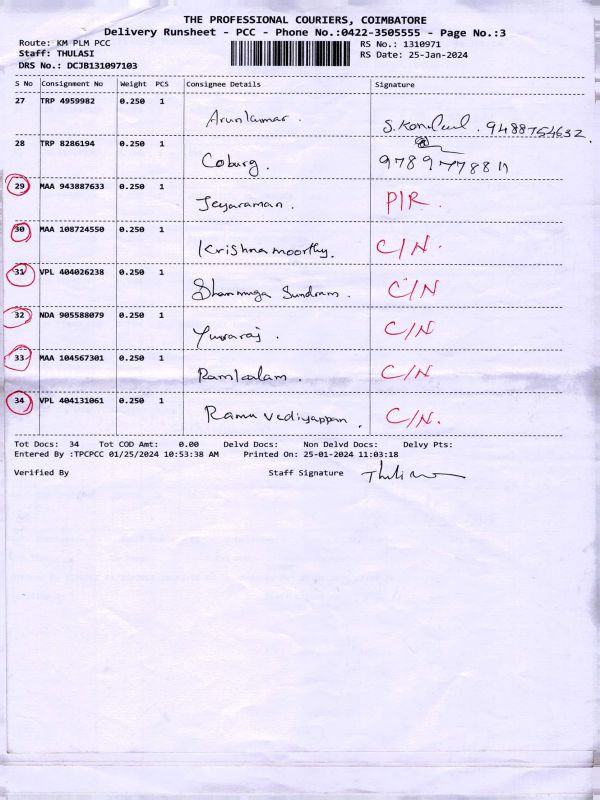 THE PROFESSIONAL COURIERS, COIMBATORE
Delivery Runsheet - PCC - Phone No.:0422-3505555 - Page No.:3
Route: KM PLM PCC RS No.: 1310971
Staff: THULASI RS Date: 25-Jan-2024
DRS No.: DCJB131097103
S No Consignment No Weight PCS Consignee Details Signature
27 TRP 4959982 0.250 1 Arunkumar. 9488754632.
28 TRP 8286194 0.250 1 Coburg.
29 MAA 943887633 0.250 1 Jeyaraman. P/R.
30 MAA 108724550 0.250 1 Krishnamoorthy. C/N.
31 VPL 404026238 0.250 1 Shanmuga Sundram. C/N
32 NDA 905588079 0.250 1 Yuvaraj. C/N
33 MAA 104567301 0.250 1 Ramkalam. C/N
34 VPL 404131061 0.250 1 Ramu vediyappan. C/N.
Tot Docs: 34 Tot COD Amt: 0.00 Delvd Docs: Non Delvd Docs: Delvy Pts:
Entered By :TPCPCC 01/25/2024 10:53:38 AM Printed On: 25-01-2024 11:03:18
Verified By Staff Signature